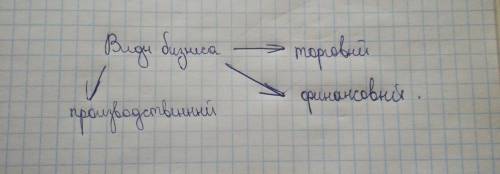 Виды бизнеса → торовый
финансовый.
производственный